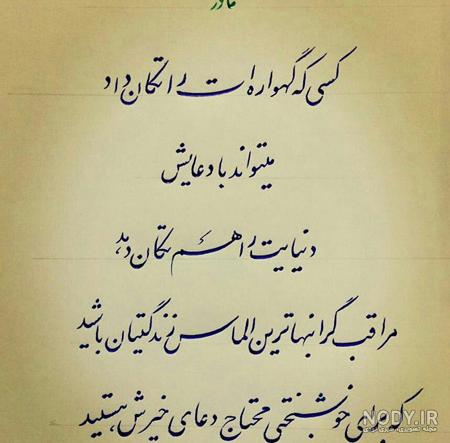 مادر
کسی که گهواره ات را تکان داد
میتواند با دعایش
دنیایت را هم تکان دهد
مراقب گرانبهاترین الماس زندگیتان باشید
که برای خوشبختی محتاج دعای خیرش هستید
NODY.IR